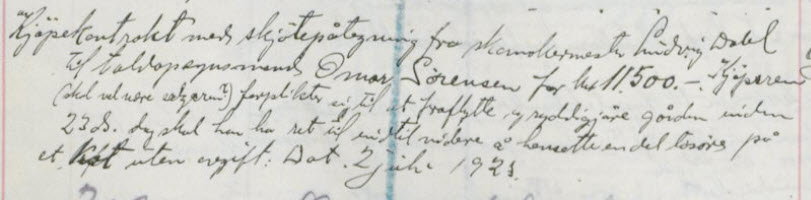 "Kjøpekontrakt med skjøtepåtegning fra skomakermester Ludvig Dahl
til toldopsynsmand Omar Sørensen for kr 11.500.-. "Kjøperen
(skal vel være sælgeren?) forplikter sig til at fraflytte og ryddiggjøre gården inden
23 ds. dog skal han ha ret til indtil videre å hensætte en del løsøre på
et loft uten avgift. Dat. 2 juli 1921.